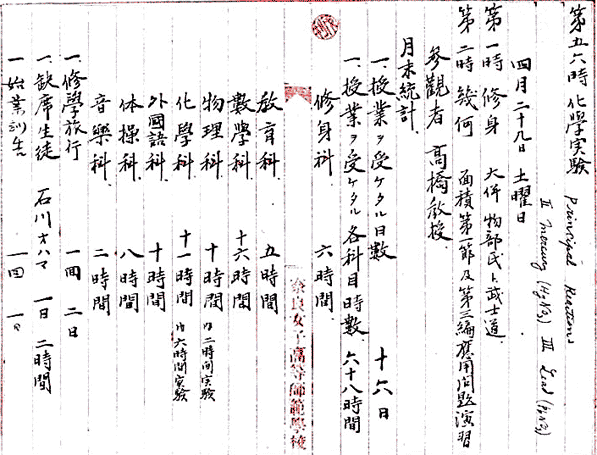 第五六時 化學実験 Principal Reactions
II Mercury (HgNO3) III Lead (PbNO3)
四月二十九日 土曜日
第一時 修身 大伴物部氏ト武士道
第二時 幾何 面積第一節及第三編應用問題演習
参觀者 高橋教授
月末統計
一、授業ヲ受ケタル日數 十六日
一、授業ヲ受ケタル各科目時數 六十八時間
修身科 六時間
奈良女子高等師範學校
教育科 五時間
數學科 十六時間
物理科 十時間 内二時間実験
化學科 十一時間 内六時間実験
外國語科 十時間
体操科 八時間
音樂科 二時間
一、修學旅行 一回 二日
一、缺席生徒 石川 一日 二時間
一、始業訓告 一回 一日